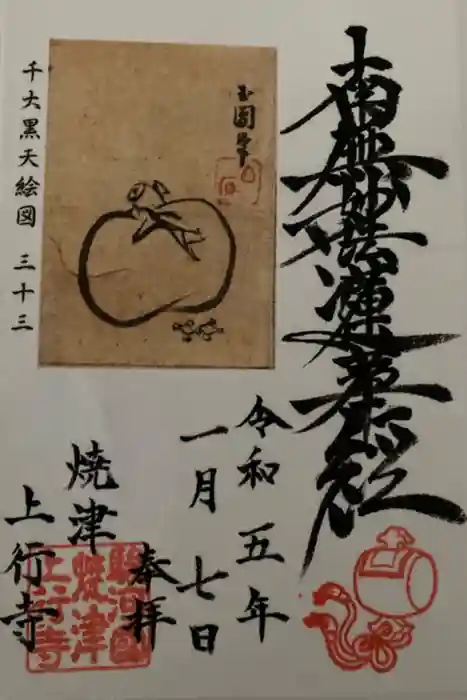 南無妙法蓮華経
玉圓筆
千大黒天絵図 三十三
令和五年
一月七日
奉拝
焼津
上行寺
駿河國
焼津
上行寺